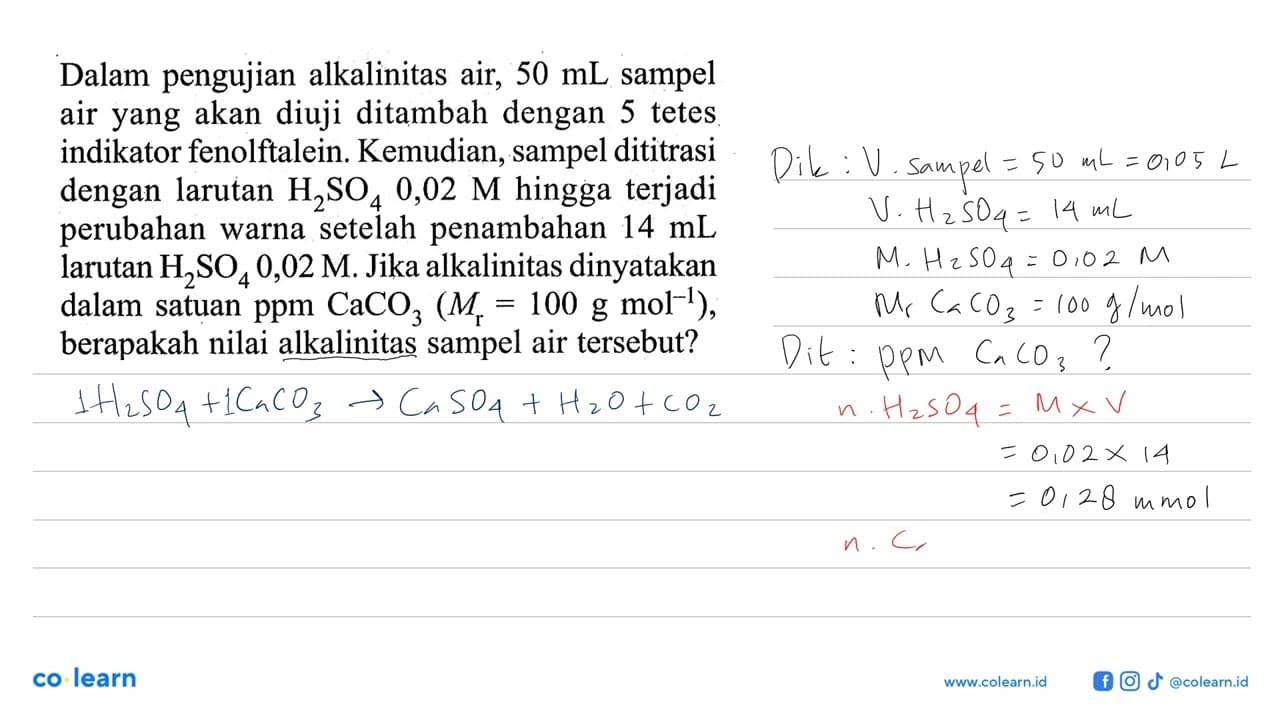 Dalam pengujian alkalinitas air, 50 mL sampel
air yang akan diuji ditambah dengan 5 tetes
indikator fenolftalein. Kemudian, sampel dititrasi
dengan larutan H₂SO₄ 0,02 M hingga terjadi
perubahan warna setelah penambahan 14 mL
larutan H₂SO₄ 0,02 M. Jika alkalinitas dinyatakan
dalam satuan ppm CaCO₃ (Mᵣ = 100 g mol⁻¹),
berapakah nilai alkalinitas sampel air tersebut?
1H₂SO₄ + 1CaCO₃ → CaSO₄ + H₂O + CO₂
Dik : V. sampel = 50 mL = 0,05 L
V. H₂SO₄ = 14 mL
M. H₂SO₄ = 0,02 M
Mr CaCO₃ = 100 g/mol
Dit : ppm CaCO₃ ?
n. H₂SO₄ = M × V
= 0,02 × 14
= 0,28 mmol
n. C
co learn
www.colearn.id
@colearn.id